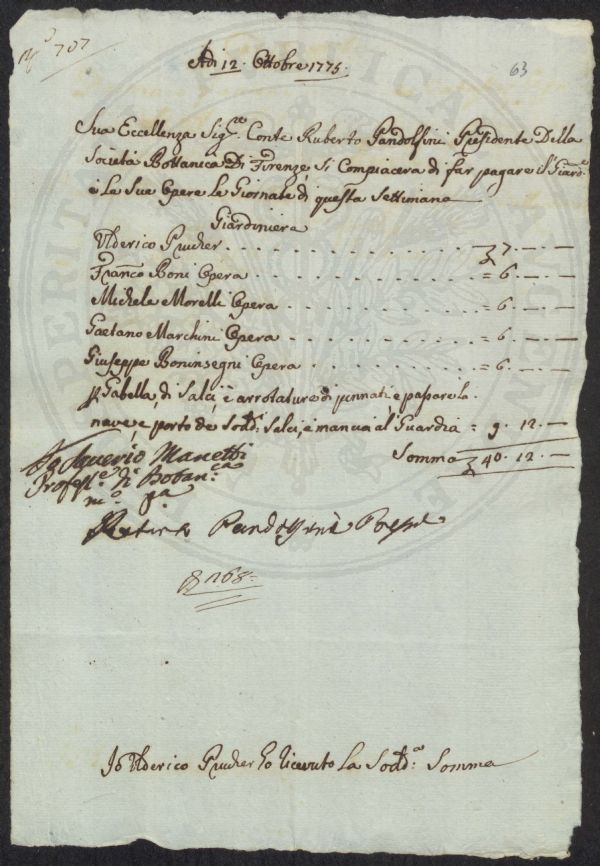 N.o 707
Adi 12. Ottobre 1775.
63
Sua Eccellenza Sig.re Conte Ruberto Pandolfini Presidente Della
Società Bottanica Di Firenze Si Compiacera di far pagare il Giard.e
e La Sue Opere Le Giornate di questa Settimana
Giardiniera
Ulderico Prucher . . . . . . . . . . . . 7 . — . —
Fran.co Boni Opera . . . . . . . . . . . = 6 . — . —
Michele Morelli Opera . . . . . . . . . = 6 . — . —
Gaetano Marchini Opera . . . . . . . . = 6 . — . —
Giuseppe Boninsegni Opera . . . . . . = 6 . — . —
p Gabella, di Salci, e arrotature di pennati, e passare la
nave e porto de Sodd.i Salci, e mancia al Guardia = 9. 12. —
Somma 40. 12. —
Io Saverio Manetti
Profess.e di Botan.ca
m.o pa.
Ruberto Pandolfini Pres.e
168
Io Ulderico Prucher ho ricevuto La Sodd.a Somma